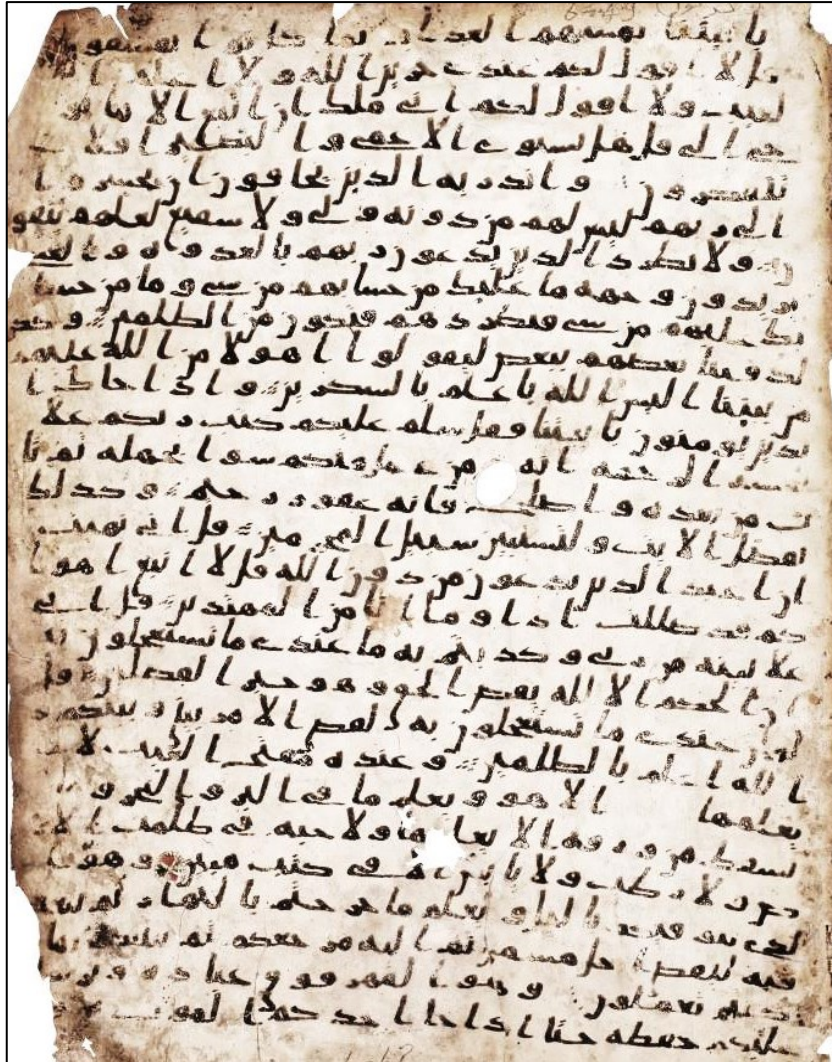 6-49
بايتنا يمسهم العذاب بما كانوا يفسقون
قل لا اقول لكم عندي خزين الله ولا اعلم ا
لغيب ولا اقول لكم اني ملك ان اتبع الا ما يو
حى الي قل هل يستوي الاعمى والبصير افلا ت
تفكرون وانذر به الذين يخافون ان يحشروا
الى ربهم ليس لهم من دونه ولي ولا شفيع لعلهم يتقو
ن ولا تطرد الذين يدعون ربهم بالغدوه والعشي
يريدون وجهه ما عليك من حسابهم من شي وما من حسا
بك عليهم من شي فتطردهم فتكون من الظلمين وكذ
لك فتنا بعضهم ببعض ليقولوا اهولا من الله عليهم
من بيننا اليس الله باعلم بالشكرين واذا جاك ا
لذين يومنون بايتنا فقل سلم عليكم كتب ربكم علا
نفسه الرحمه انه من عمل منكم سوا بجهله ثم تا
ب من بعده واصلح فانه غفور رحيم وكذلك
نفصل الايت ولتستبين سبيل المجرمين قل اني نهيت
ان اعبد الذين يدعون من دون الله قل لا اتبع اهوا
كم قد ضللت اذا وما انا من المهتدين قل اني
علا بينه من ربي وكذبتم به ما عندي ما تستعجلون به
ان الحكم الا لله يقص الحق وهو خير الفصلين قل
لو ان عندي ما تستعجلون به لقضي الامر بيني وبينكم و
الله اعلم بالظلمين وعنده مفتح الغيب لا
يعلمها الا هو ويعلم ما في البر والبحر وما
تسقط من ورقه الا يعلمها ولا حبه في ظلمت الا
رض ولا رطب ولا يابس الا في كتب مبين وهو ا
لذي يتوفيكم باليل ويعلم ما جرحتم بالنهار ثم يبعثكم
فيه ليقضى اجل مسمى ثم اليه مرجعكم ثم ينبيكم بما
كنتم تعملون وهو القهر فوق عباده ويرسل
عليكم حفظه حتا اذا جا احدكم الموت